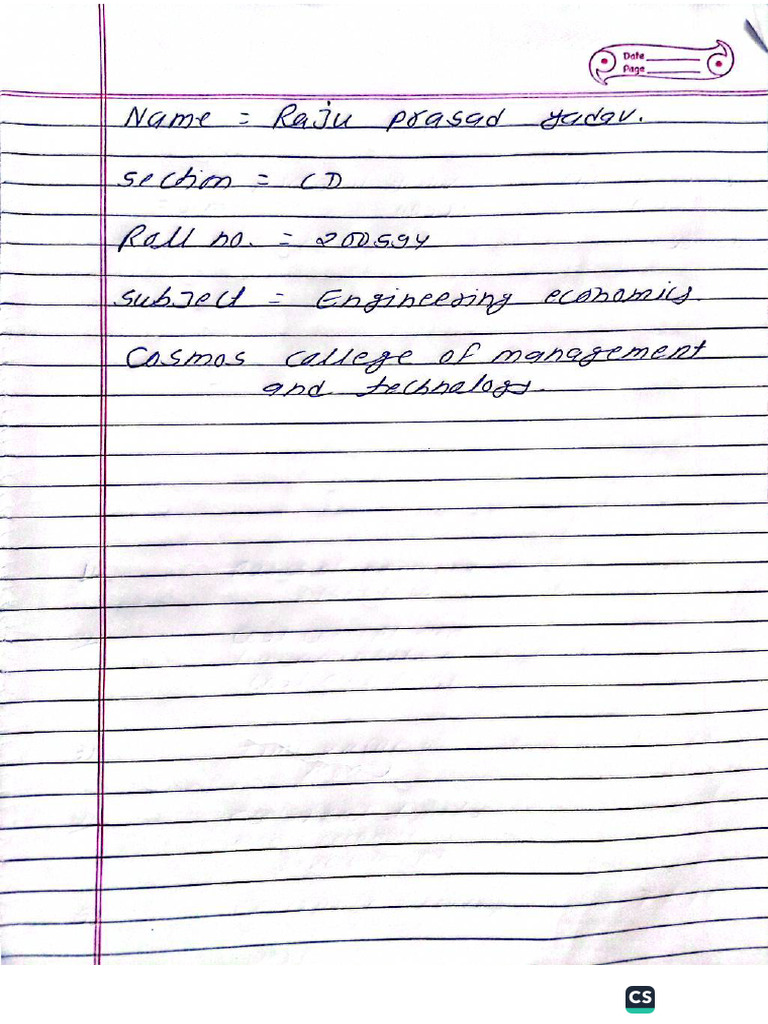 Date
Page
Name = Raju prasad yadav.
section = CD
Roll no. = 200594
subject = Engineering economics.
Cosmos college of management
and technology.
CS